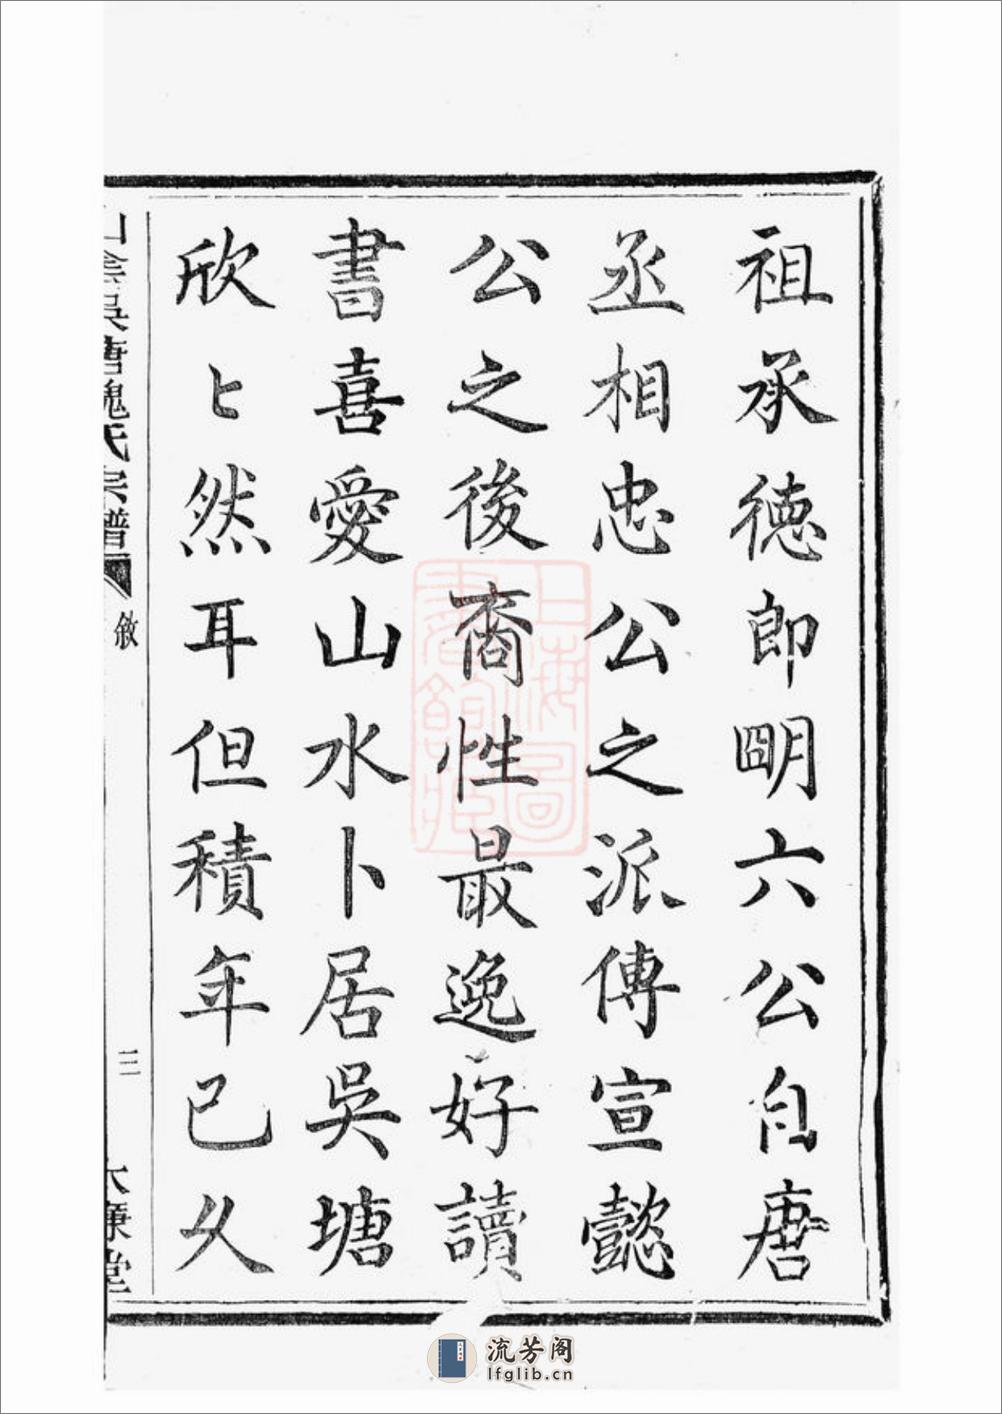 祖承德郎明六公自唐
丞相忠公之派傳宣懿
公之後裔性最逸好讀
書喜愛山水卜居吳塘
欣〻然耳但積年已久
山陰吳塘魏氏宗譜
敘
三
大廉堂
上海圖書館藏
流芳阁
lfglib.cn